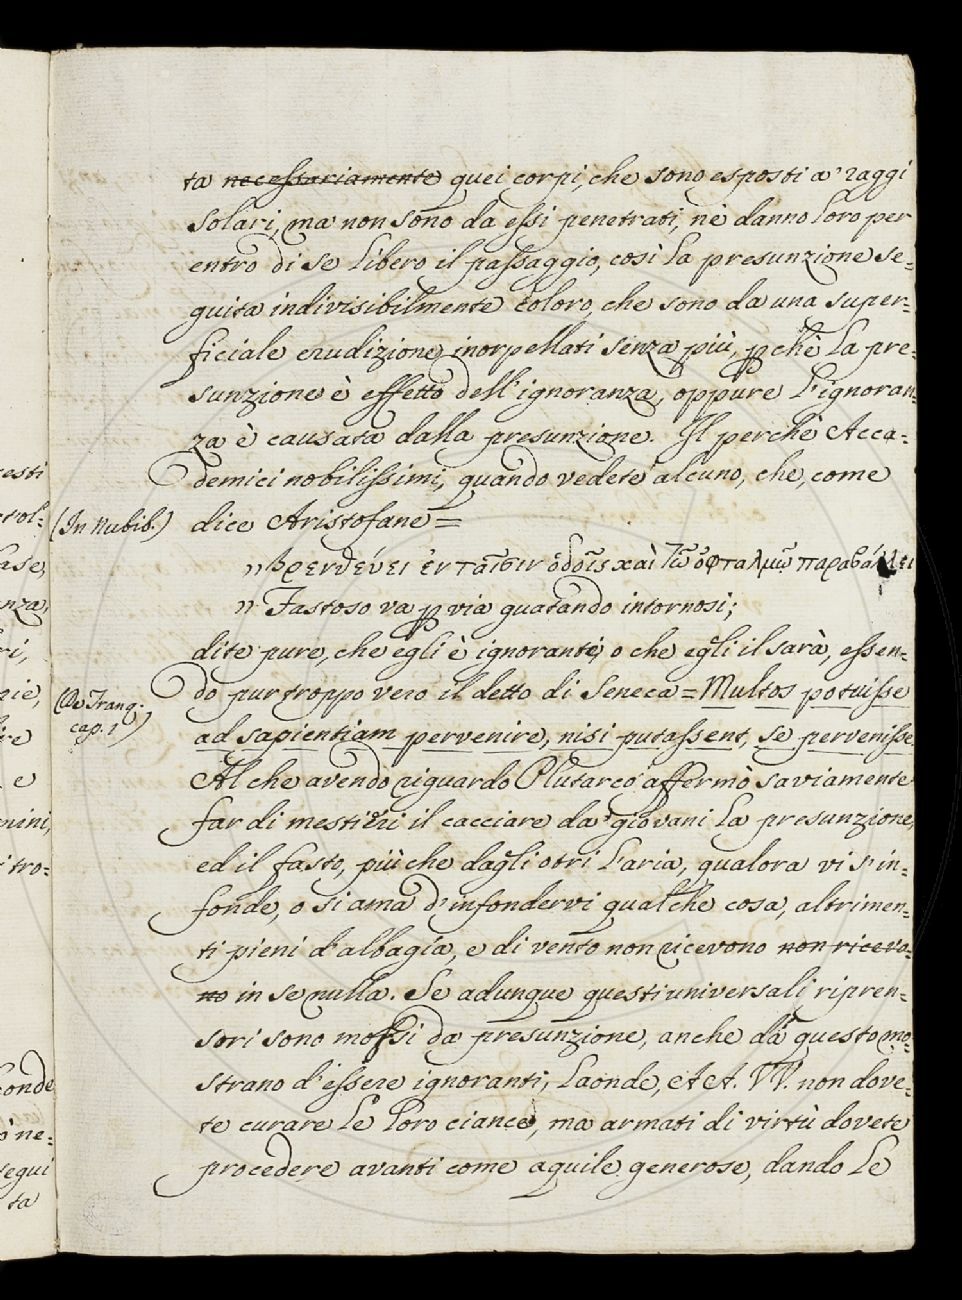 ta necessariamente quei corpi, che sono esposti a' raggi
solari, ma non sono da essi penetrati, nè danno loro per
entro di se libero il passaggio, così la presunzione se=
guita indivisibilmente coloro, che sono da una super=
ficiale erudizione inorpellati senza più, pchè la pre=
sunzione è effetto dell'ignoranza, oppure l'ignoran=
za è causata dalla presunzione. Il perchè Acca=
demici nobilissimi, quando vedete alcuno, che, come
(In Nubib.) dice Aristofane =
ἐν ταῖσιν ὁδοῖς καὶ τῶ ὀφταλμῶ παραβάλλει
" Fastoso va p via guatando intornosi;
dite pure, che egli è ignorante, o che egli il sarà, essen=
do pur troppo vero il detto di Seneca = Multos potuisse
(De Tranq. cap. 1)
ad sapientiam pervenire, nisi putassent, se pervenisse.
Al che avendo riguardo Plutarco affermò saviamente
far di mestieri il cacciare da' giovani la presunzione,
ed il fasto, più che dagli otri l'aria, qualora vi s'in=
fonde, o si ama d'infondervi qualche cosa, altrimen=
ti pieni d'albagia, e di vento non ricevono non ricevo=
no in se nulla. Se adunque questi universali ripren=
sori sono mossi da presunzione, anche da questo mo=
strano d'essere ignoranti; laonde, AA. VV. non dove=
te curare le loro ciance, ma armati di virtù dovete
procedere avanti come aquile generose, dando le
esti
rol=
ase,
nza,
ri,
gie,
re
e
mini,
itro=
onde
ne=
segui
ta